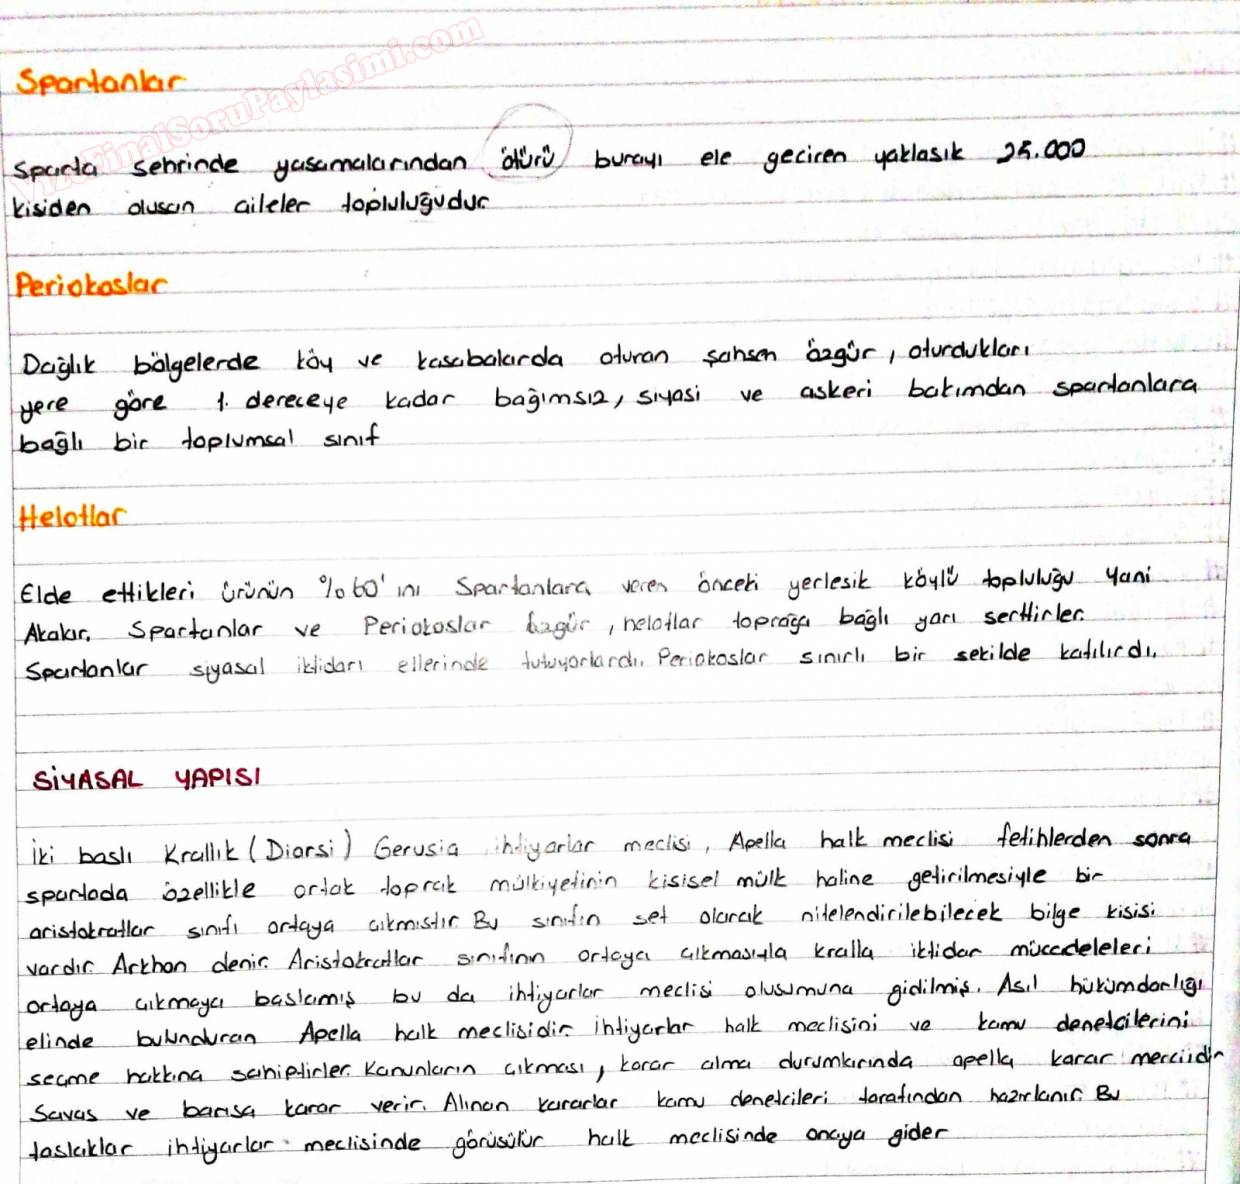 VizeFinalSoruPaylasimi.com
Spartanlar
Sparta sehrinde yasamalarından ötürü burayı ele geciren yaklasık 25.000
kisiden olusan aileler topluluğudur
Periokoslar
Dağlık bölgelerde köy ve kasabalarda oturan şahsen özgür, oturdukları
yere göre 1. dereceye kadar bağımsız, siyasi ve askeri bakımdan spartanlara
bağlı bir toplumsal sınıf
Helotlar
Elde ettikleri ürünün %60'ını Spartanlara veren önceki yerlesik köylü topluluğu yani
Akalar. Spartanlar ve Periokoslar özgür, helotlar toprağa bağlı yarı serttirler.
Spartanlar siyasal iktidarı ellerinde tutuyorlardı. Periokoslar sınırlı bir sekilde katılırdı.
SİYASAL YAPISI
İki baslı Krallık (Diarsi) Gerusia ihtiyarlar meclisi, Apella halk meclisi fetihlerden sonra
spartada özellikle ortak toprak mülkiyetinin kisisel mülk haline getirilmesiyle bir
aristokratlar sınıfı ortaya cıkmıstır. Bu sınıfın sef olarak nitelendirilebilecek bilge kisisi
vardır. Arkhon denir. Aristokratlar sınıfının ortaya cıkmasıyla kralla iktidar mücadeleleri
ortaya cıkmaya baslamış bu da ihtiyarlar meclisi olusumuna gidilmiş. Asıl hükümdarlığı
elinde bulunduran Apella halk meclisidir. ihtiyarlar halk meclisini ve kamu denetcilerini
secme hakkına sahiptirler. Kanunların cıkması, karar alma durumlarında apella karar merciidir
Savas ve barısa karar verir. Alınan kararlar kamu denetcileri tarafından hazırlanır. Bu
taslaklar ihtiyarlar meclisinde görüsülür halk meclisinde onaya gider